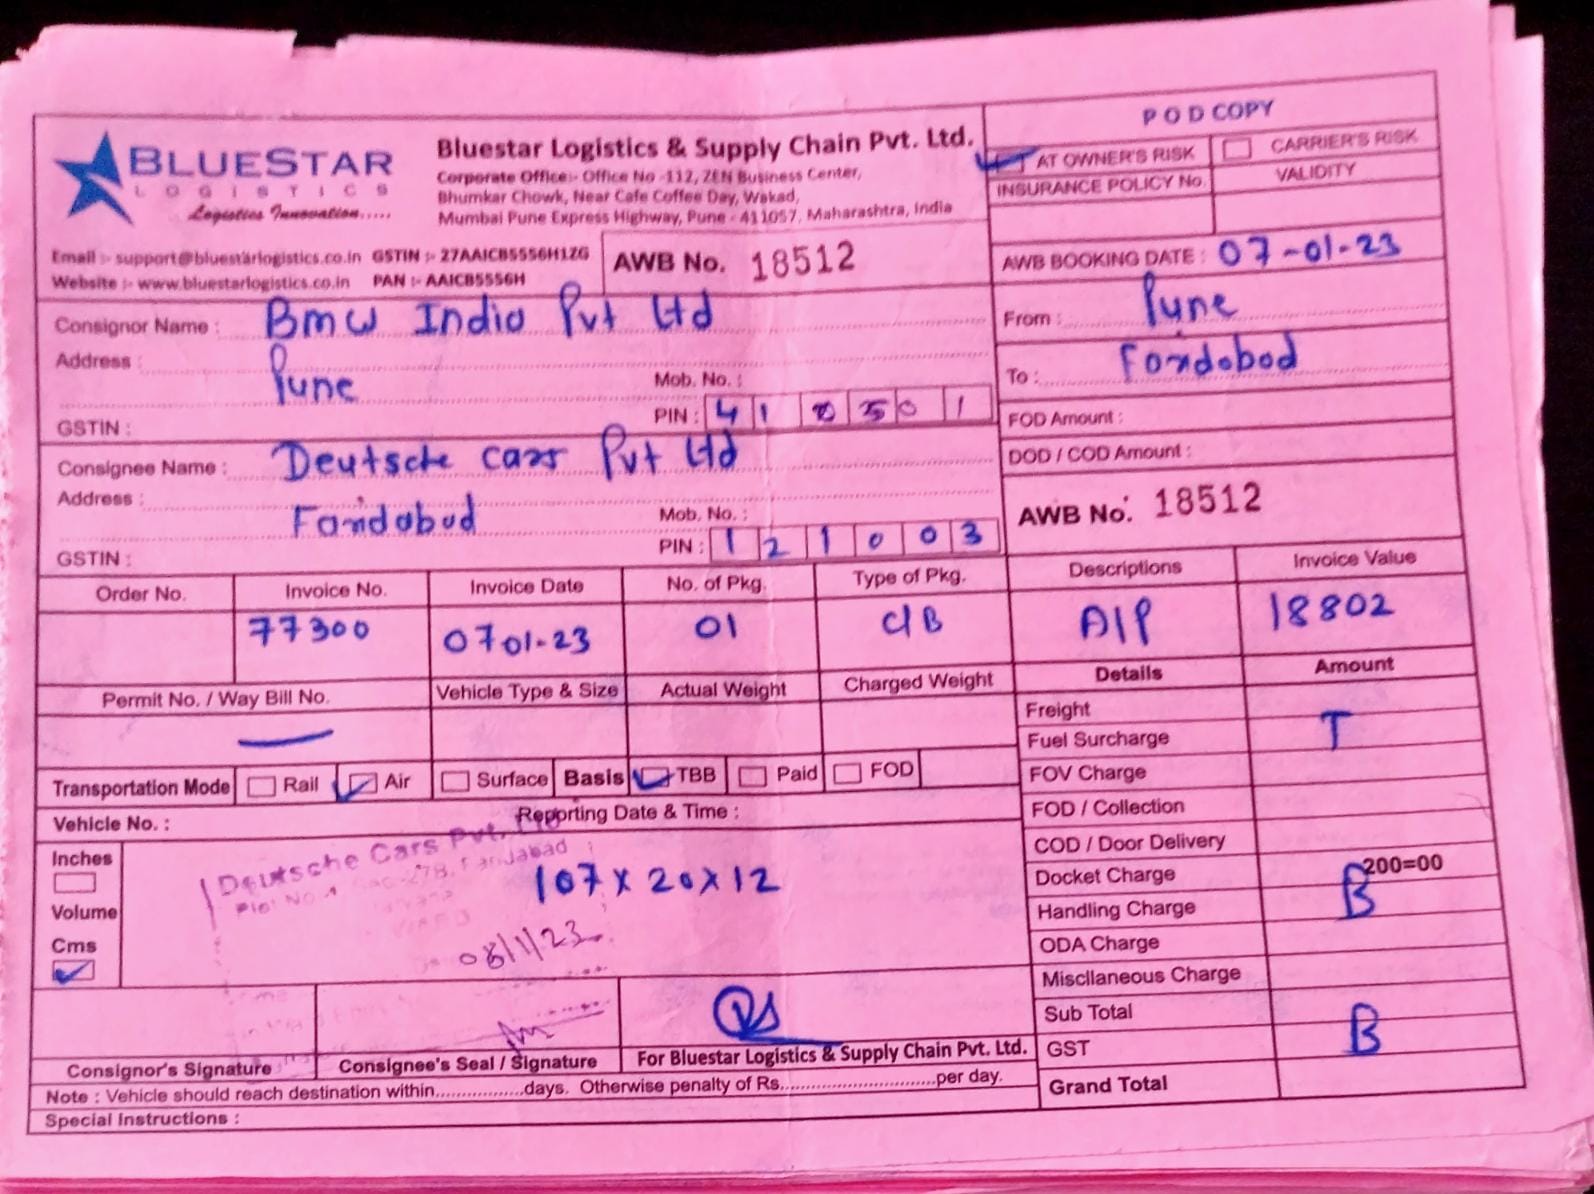 POD COPY
BLUESTAR
LOGISTICS
Logistics Innovation.....
Bluestar Logistics & Supply Chain Pvt. Ltd.
Corporate Office:- Office No -112, ZEN Business Center,
Bhumkar Chowk, Near Cafe Coffee Day, Wakad,
Mumbai Pune Express Highway, Pune - 411057, Maharashtra, India
AT OWNER'S RISK CARRIER'S RISK
INSURANCE POLICY No. VALIDITY
Email :- support@bluestarlogistics.co.in GSTIN :- 27AAICB5556H1ZG
Website :- www.bluestarlogistics.co.in PAN :- AAICB5556H
AWB No. 18512
AWB BOOKING DATE : 07-01-23
Consignor Name : Bmw India Pvt Ltd
Address : Pune
Mob. No. :
GSTIN : PIN : 41 0501
From : Pune
To : Faridabad
FOD Amount :
DOD / COD Amount :
Consignee Name : Deutsche cars Pvt Ltd
Address : Faridabad
Mob. No. :
GSTIN : PIN : 121003
AWB No. 18512
Order No. Invoice No. Invoice Date No. of Pkg. Type of Pkg. Descriptions Invoice Value
77300 0701-23 01 C/B A/P 18802
Permit No. / Way Bill No. Vehicle Type & Size Actual Weight Charged Weight Details Amount
Freight
Fuel Surcharge T
Transportation Mode Rail Air Surface Basis TBB Paid FOD
FOV Charge
Vehicle No. : Reporting Date & Time :
FOD / Collection
COD / Door Delivery
Inches
Volume
Cms
Deutsche Cars Pvt.
107 x 20 x 12
08/1/23
Docket Charge 200=00
Handling Charge B
ODA Charge
Miscllaneous Charge
Sub Total
GST B
Grand Total
Consignor's Signature Consignee's Seal / Signature For Bluestar Logistics & Supply Chain Pvt. Ltd.
Note : Vehicle should reach destination within.................days. Otherwise penalty of Rs..............................per day.
Special Instructions :